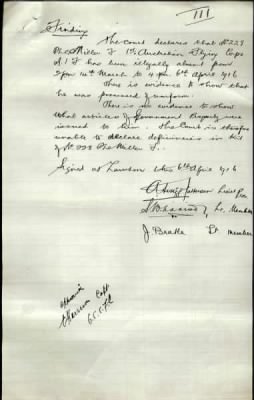 III
Finding
The Court declares that No 229
Pte Miller J 1st Australian Flying Corps
A.I.F has been illegally absent from
9 pm 14th March to 4 pm 6th April 1916
There is evidence to show that
he was possessed of uniform.
There is no evidence to show
what articles of Government Property were
issued to him. The Court is therefore
unable to declare deficiencies in kit
of No 229 Pte Miller J.
Signed at Laverton this 6th April 1916
Lieut Pres
Lt. Member
J. Brake Lt member
Capt